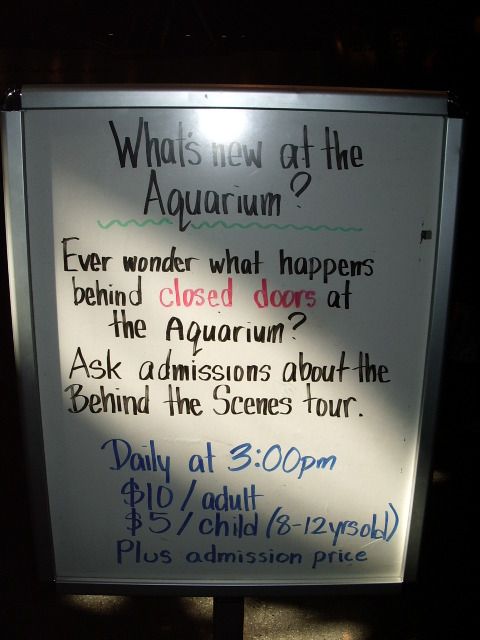 What's new at the
Aquarium?
Ever wonder what happens
behind closed doors at
the Aquarium?
Ask admissions about the
Behind the Scenes tour.
Daily at 3:00pm
$10/adult
$5/child (8-12yrsold)
Plus admission price